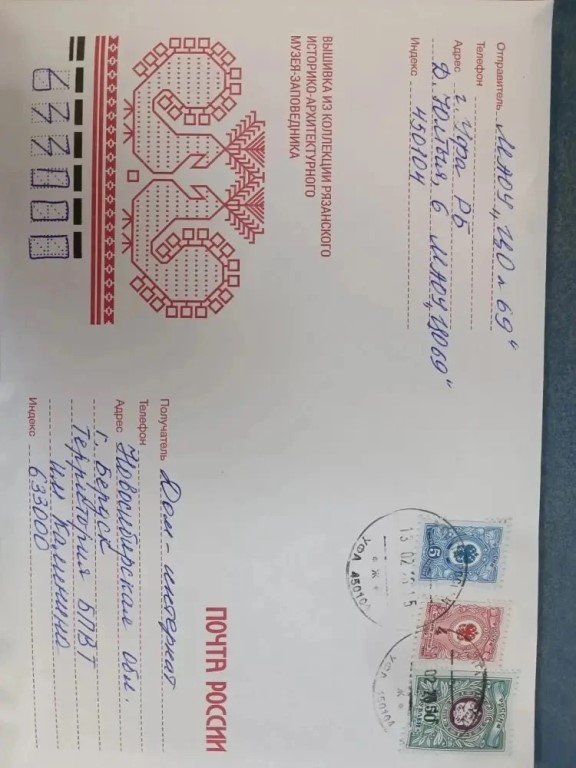 Отправитель МАОУ „ЦО № 69“
Телефон
Адрес г. Уфа РБ
Д. Юлтыя, 6 МАОУ „ЦО 69“
Индекс 450104
ВЫШИВКА ИЗ КОЛЛЕКЦИИ РЯЗАНСКОГО
ИСТОРИКО-АРХИТЕКТУРНОГО
МУЗЕЯ-ЗАПОВЕДНИКА
633000
ПОЧТА РОССИИ
Получатель Дом-интернат
Телефон
Адрес Новосибирская обл.
г. Бердск
Территория БПВТ
им Калинина
Индекс 633000
5
4
50
13 02
УФА 450104
УФА 450104